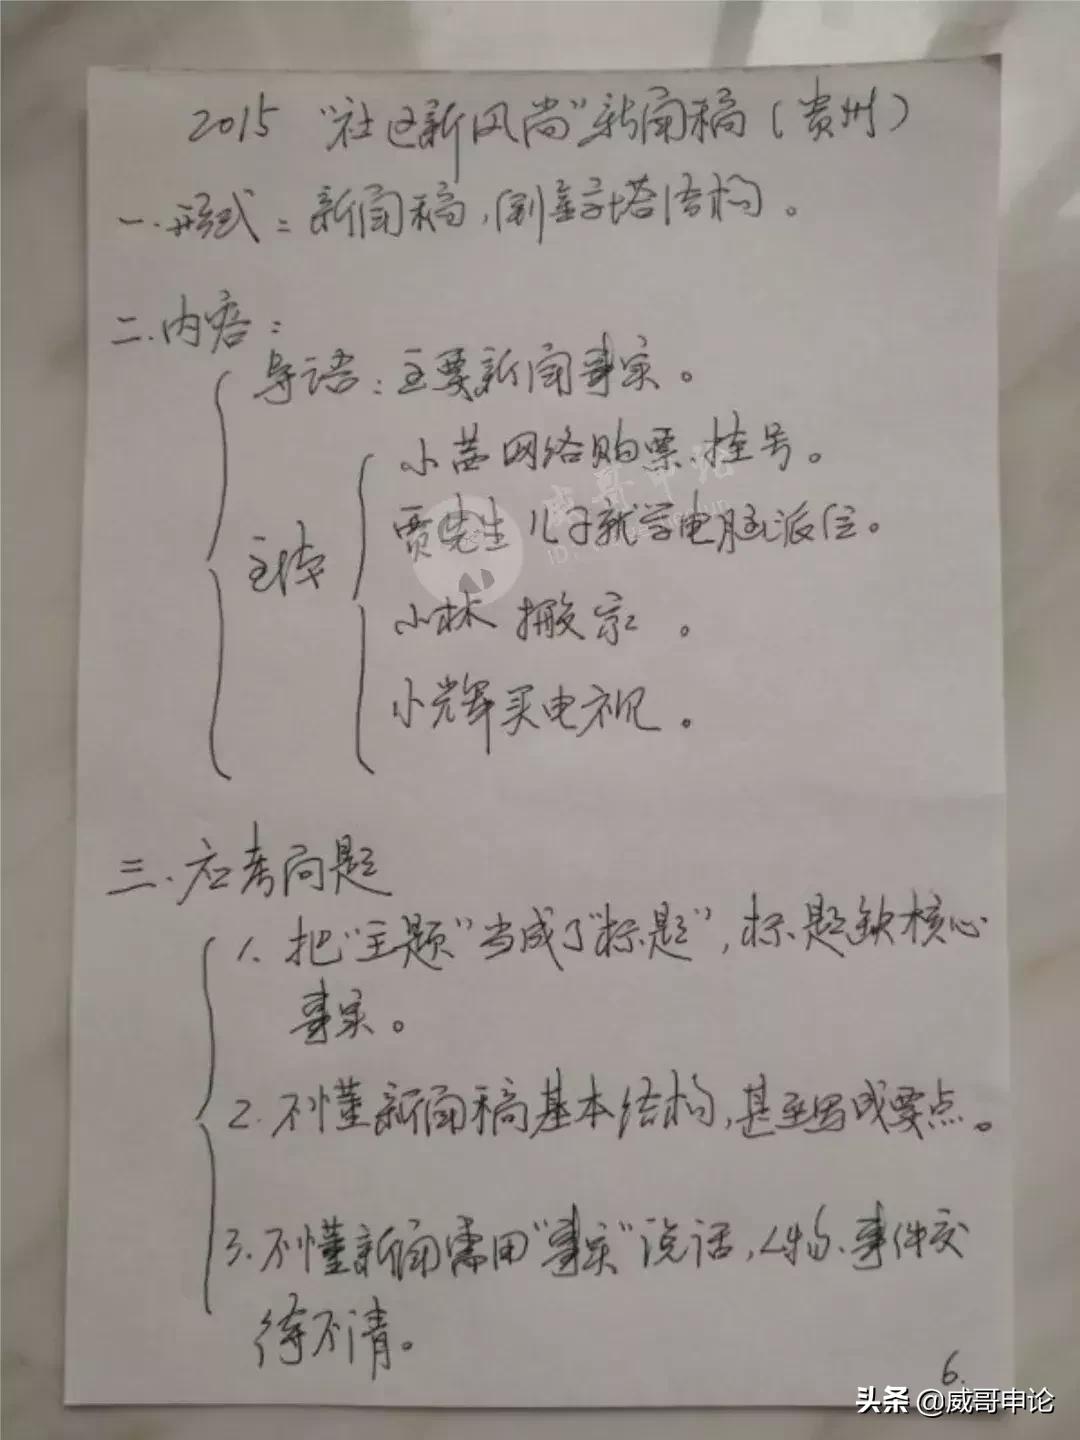 2015 “社区新风尚”新闻稿（贵州）
一.形式：新闻稿，倒金字塔结构。
二.内容：
导语：主要新闻事实。
主体
小茜网络购票、挂号。
贾先生儿子就学电脑派位。
小林 搬家 。
小辉买电视。
三.应考问题
1. 把“主题”当成了“标题”，标题缺核心
事实。
2. 不懂新闻稿基本结构，甚至写成要点。
3. 不懂新闻需用“事实”说话，人物、事件交
待不清。
6.
威哥申论
头条 @威哥申论